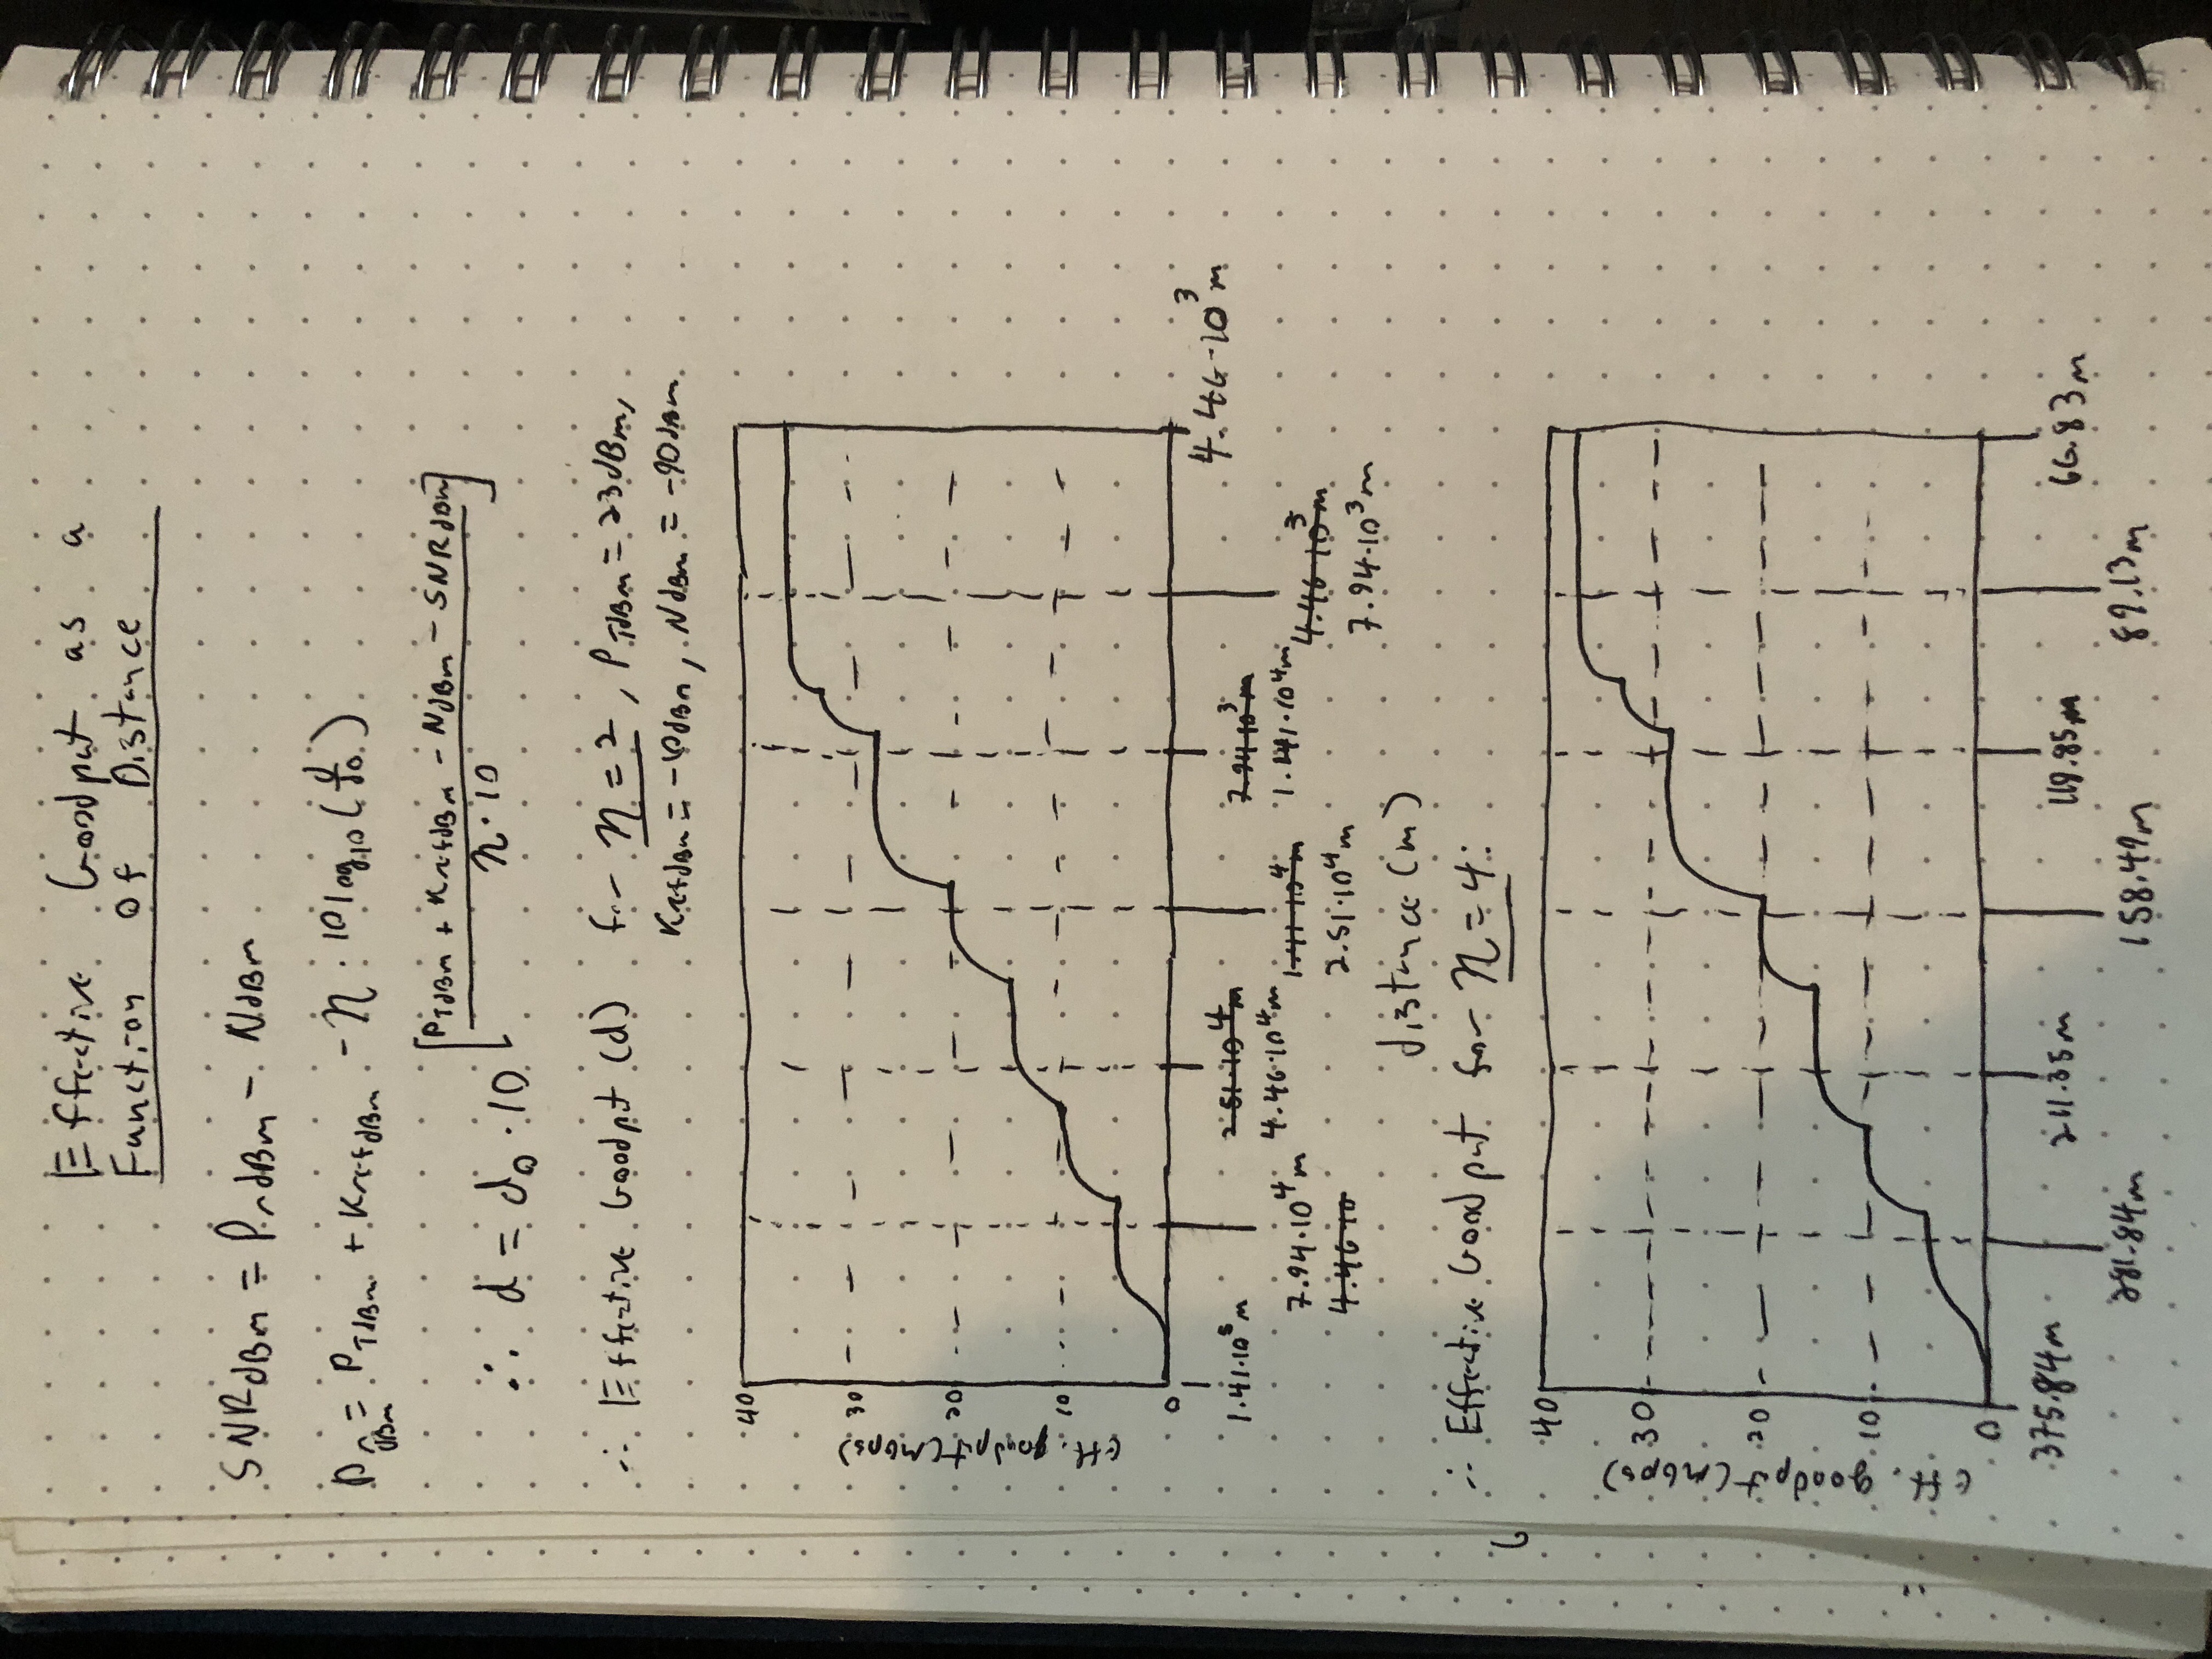 Effective Goodput as a
Function of Distance
SNR dBm = Pr dBm - N dBm
Pr dBm = PT dBm + Kref dBm - η · 10 log10 (d/d0)
∴ d = d0 · 10 [PT dBm + Kref dBm - N dBm - SNR dBm / η · 10]
∴ Effective Goodput (d) for η = 2, PT dBm = 23 dBm,
Kref dBm = -10 dBm, N dBm = -90 dBm
40
30
20
10
0
eff. goodput (Mbps)
1.41·10^5 m
7.94·10^4 m
4.46·10
2.51·10^4 m
4.46·10^4 m
1.41·10^4 m
2.51·10^4 m
7.94·10^3 m
1.141·10^4 m
4.46·10^3 m
7.94·10^3 m
4.46·10^3 m
distance (m)
∴ Effective Goodput for η = 4:
40
30
20
10
0
eff. goodput (Mbps)
375.84m
281.84m
211.35m
158.49m
118.85m
89.13m
66.83m